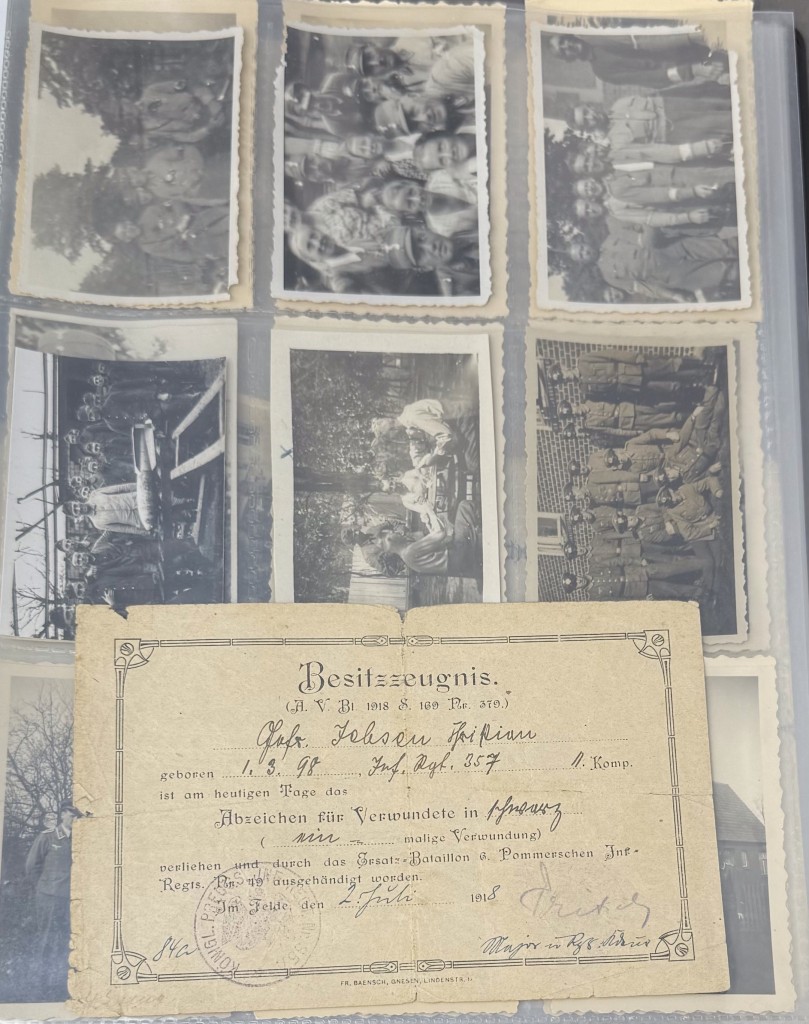 Besitzzeugnis.
(A. V. Bl. 1918 S. 169 Nr. 379.)
Gefr. Jebsen Christian
geboren 1. 3. 98, Inf. Rgt. 357 11. Komp.
ist am heutigen Tage das
Abzeichen für Verwundete in schwarz
( ein - malige Verwundung)
verliehen und durch das Ersatz-Bataillon 6. Pommerschen Inf.-
Regts. Nr. 49 ausgehändigt worden.
Im Felde, den 2. Juli 1918
84a
Major u. Rgt. Kdeur
KÖNIGL. PREUSS.
FR. BAENSCH, GNESEN, LINDENSTR. 1.